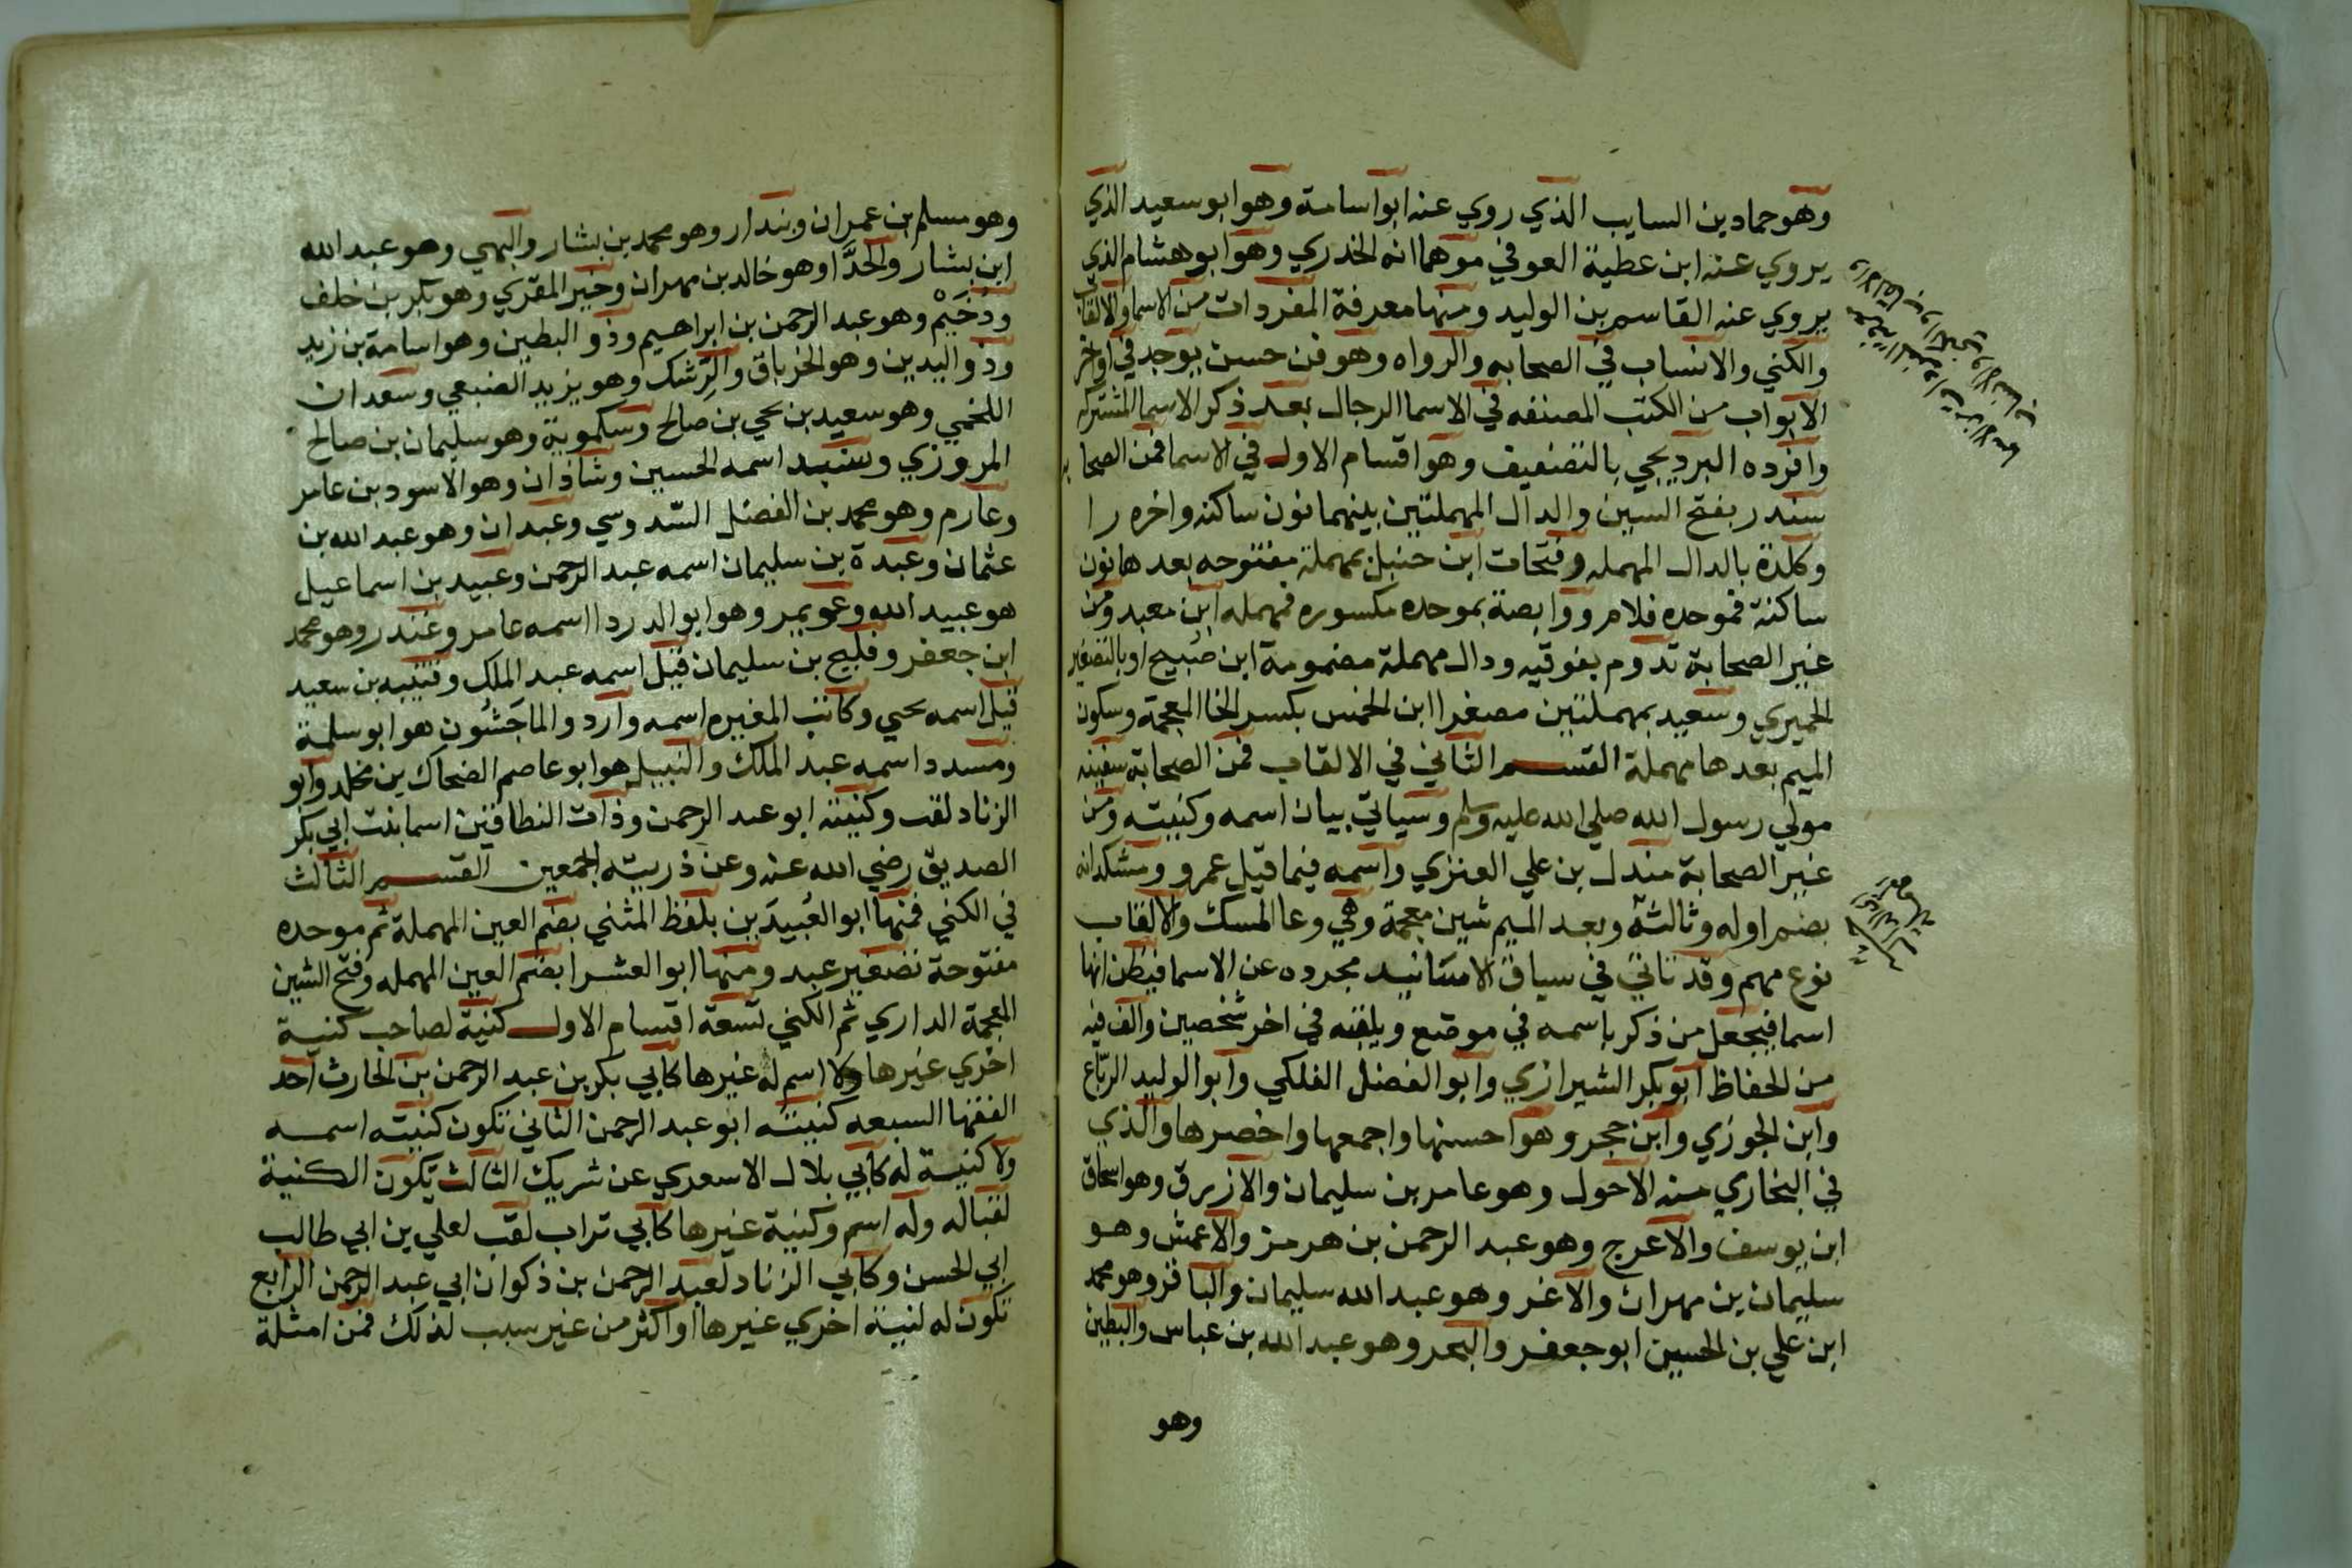 وهو حماد بن السايب الذي روي عنه ابو اسامة وهو ابو سعيد الذي
يروي عنه ابن عطية العوفي موهما انه الخدري وهو ابو هشام الذي
يروي عنه القاسم بن الوليد ومنها معرفة المفردات من الاسما والالقاب
والكني والانساب في الصحابه والرواه وهو فن حسن يوجد في اواخر
الابواب من الكتب المصنفه في الاسما الرجال بعد ذكر الاسما المشتركه
وافرده البرديجي بالتصنيف وهو اقسام الاول في الاسما فمن الصحابه
سندر بفتح السين والدال المهملتين بينهما نون ساكنه واخره را
وكلدة بالدال المهمله وفتحات ابن حنبل بمهملة مفتوحه بعدها نون
ساكنة فموحده فلام ووابصة بموحده مكسوره فمهمله ابن معبد ومن
غير الصحابة تدوم بفوقيه ودال مهملة مضمومة ابن صبيح او بالتصغير
الحميري وسعير بمهملتين مصغرا ابن الخمس بكسر الخا المعجمة وسكون
الميم بعدها مهملة القسم الثاني في الالقاب فمن الصحابة سفينه
مولي رسول الله صلي الله عليه وسلم وسياتي بيان اسمه وكنيته ومن
غير الصحابة مندل بن علي العنزي واسمه فيما قيل عمرو ومشكدانه
بضم اوله وثالثه وبعد الميم شين معجمة وهي وعا المسك والالقاب
نوع مهم وقد تاتي في سياق الاسانيد مجرده عن الاسما فيظن انها
اسما فيجعل من ذكر باسمه في موضع وبلقبه في اخر شخصين والف فيه
من الحفاظ ابو بكر الشيرازي وابو الفضل الفلكي وابو الوليد الدباغ
وابن الجوزي وابن حجر وهو احسنها واجمعها واخصرها والذي
في البخاري منه الاحول وهو عامر بن سليمان والازرق وهو اسحاق
ابن يوسف والاعرج وهو عبد الرحمن بن هرمز والاعمش وهو
سليمان بن مهران والاغر وهو عبد الله سليمان والباقر وهو محمد
ابن علي بن الحسين ابو جعفر والبحر وهو عبد الله بن عباس والبطين
وهو
وهو مسلم بن عمران وبندار وهو محمد بن بشار والبهي وهو عبد الله
ابن بشار والحذَّا وهو خالد بن مهران وختن المقري وهو بكر بن خلف
ودُحَيْم وهو عبد الرحمن بن ابراهيم وذو البطين وهو اسامة بن زيد
وذو اليدين وهو الخرباق والرشك وهو يزيد الضبعي وسعدان
اللخمي وهو سعيد بن يحي بن صالح وسلمويه وهو سليمان بن صالح
المروزي وسنيد اسمه الحسين وشاذان وهو الاسود بن عامر
وعارم وهو محمد بن الفضل السدوسي وعبدان وهو عبد الله بن
عثمان وعبدة بن سليمان اسمه عبد الرحمن وعبيد بن اسماعيل
هو عبيد الله وعويمر وهو ابو الدردا اسمه عامر وغندر وهو محمد
ابن جعفر وفليح بن سليمان قيل اسمه عبد الملك وقتيبه بن سعيد
قيل اسمه يحيي وكاتب المغيره اسمه وارد والماجشُون هو ابو سلمة
ومسدد اسمه عبد الملك والنبيل هو ابو عاصم الضحاك بن مخلد وابو
الزناد لقب وكنيته ابو عبد الرحمن وذات النطاقين اسما بنت ابي بكر
الصديق رضي الله عنه وعن ذريته اجمعين القسم الثالث
في الكني فمنها ابو العُبيدَين بلفظ المثني بضم العين المهملة ثم موحده
مفتوحة تصغير عبد ومنها ابو العشرا بضم العين المهمله وفتح الشين
المعجمة الداري ثم الكني تسعة اقسام الاول كنية لصاحب كنية
اخري غيرها ولا اسم له غيرها كابي بكر بن عبد الرحمن بن الحارث احد
الفقها السبعه كنيته ابو عبد الرحمن الثاني تكون كنيته اسمه
ولا كنية له كابي بلال الاسعري عن شريك الثالث تكون الكنية
لقبا له وله اسم وكنية غيرها كابي تراب لقب لعلي بن ابي طالب
ابي الحسن وكابي الزناد لعبد الرحمن بن ذكوان ابي عبد الرحمن الرابع
تكون له كنية اخري غيرها او اكثر من غير سبب لذلك فمن امثلة